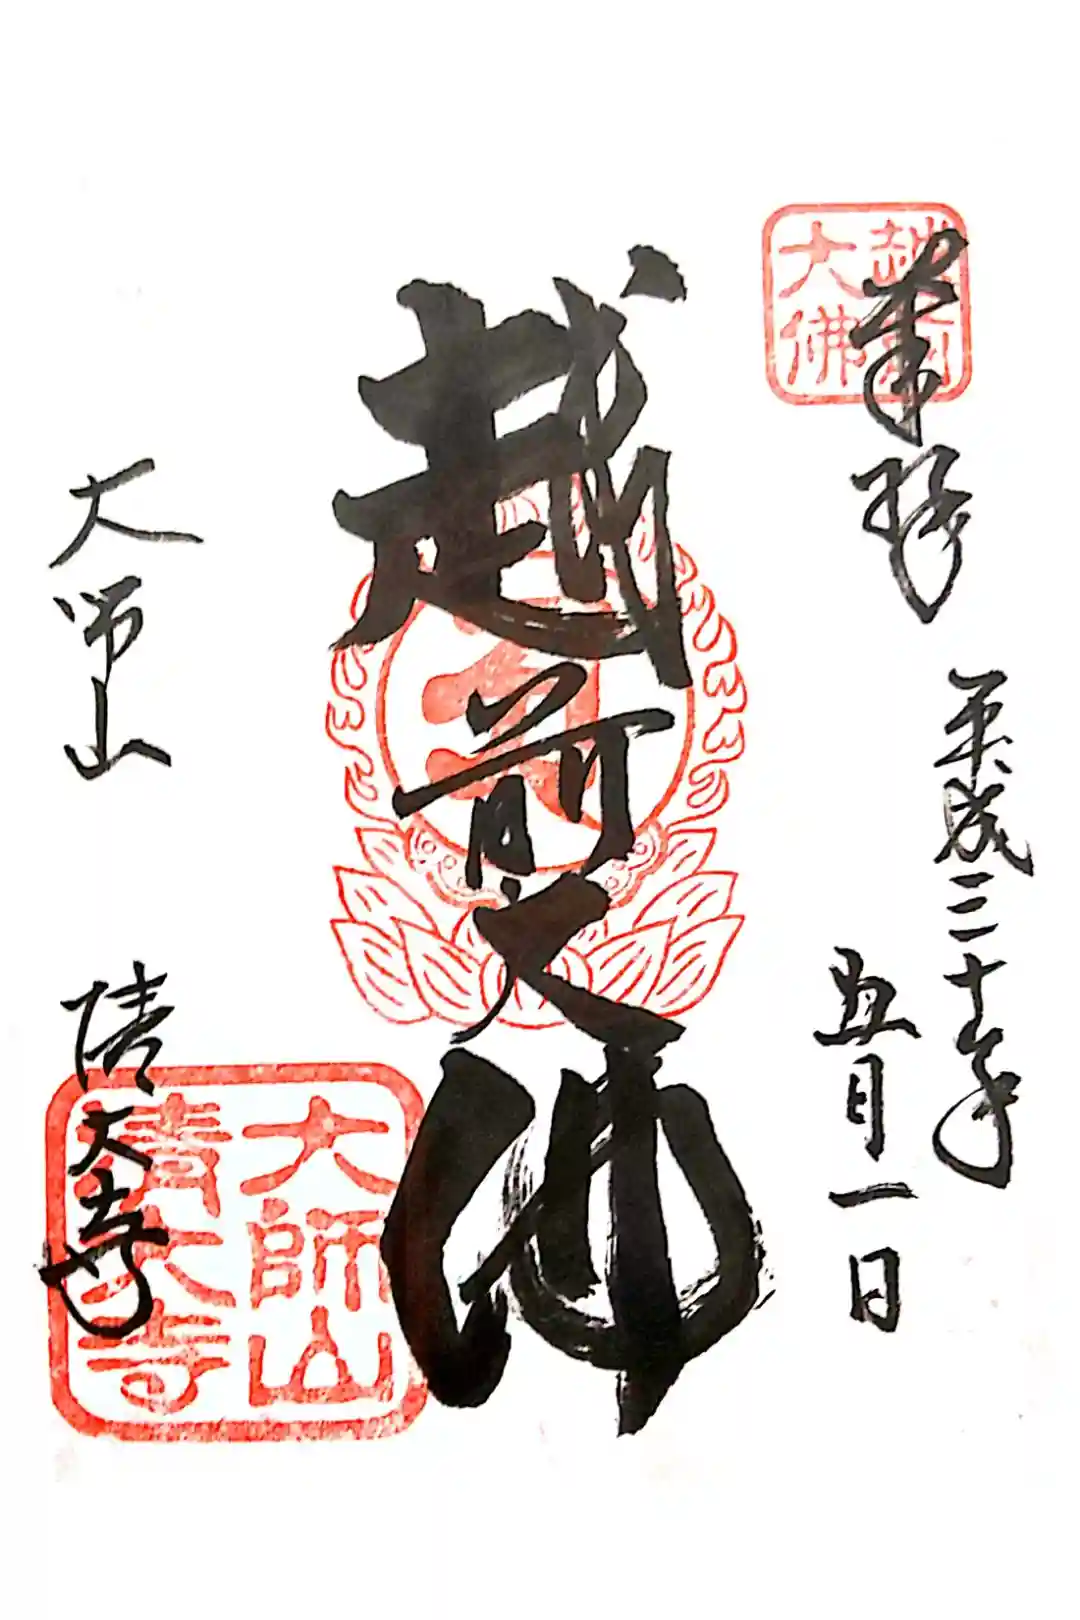 奉拝
平成三十年
五月一日
越前大佛
大師山
清大寺
越前
大佛
大師山
清大寺